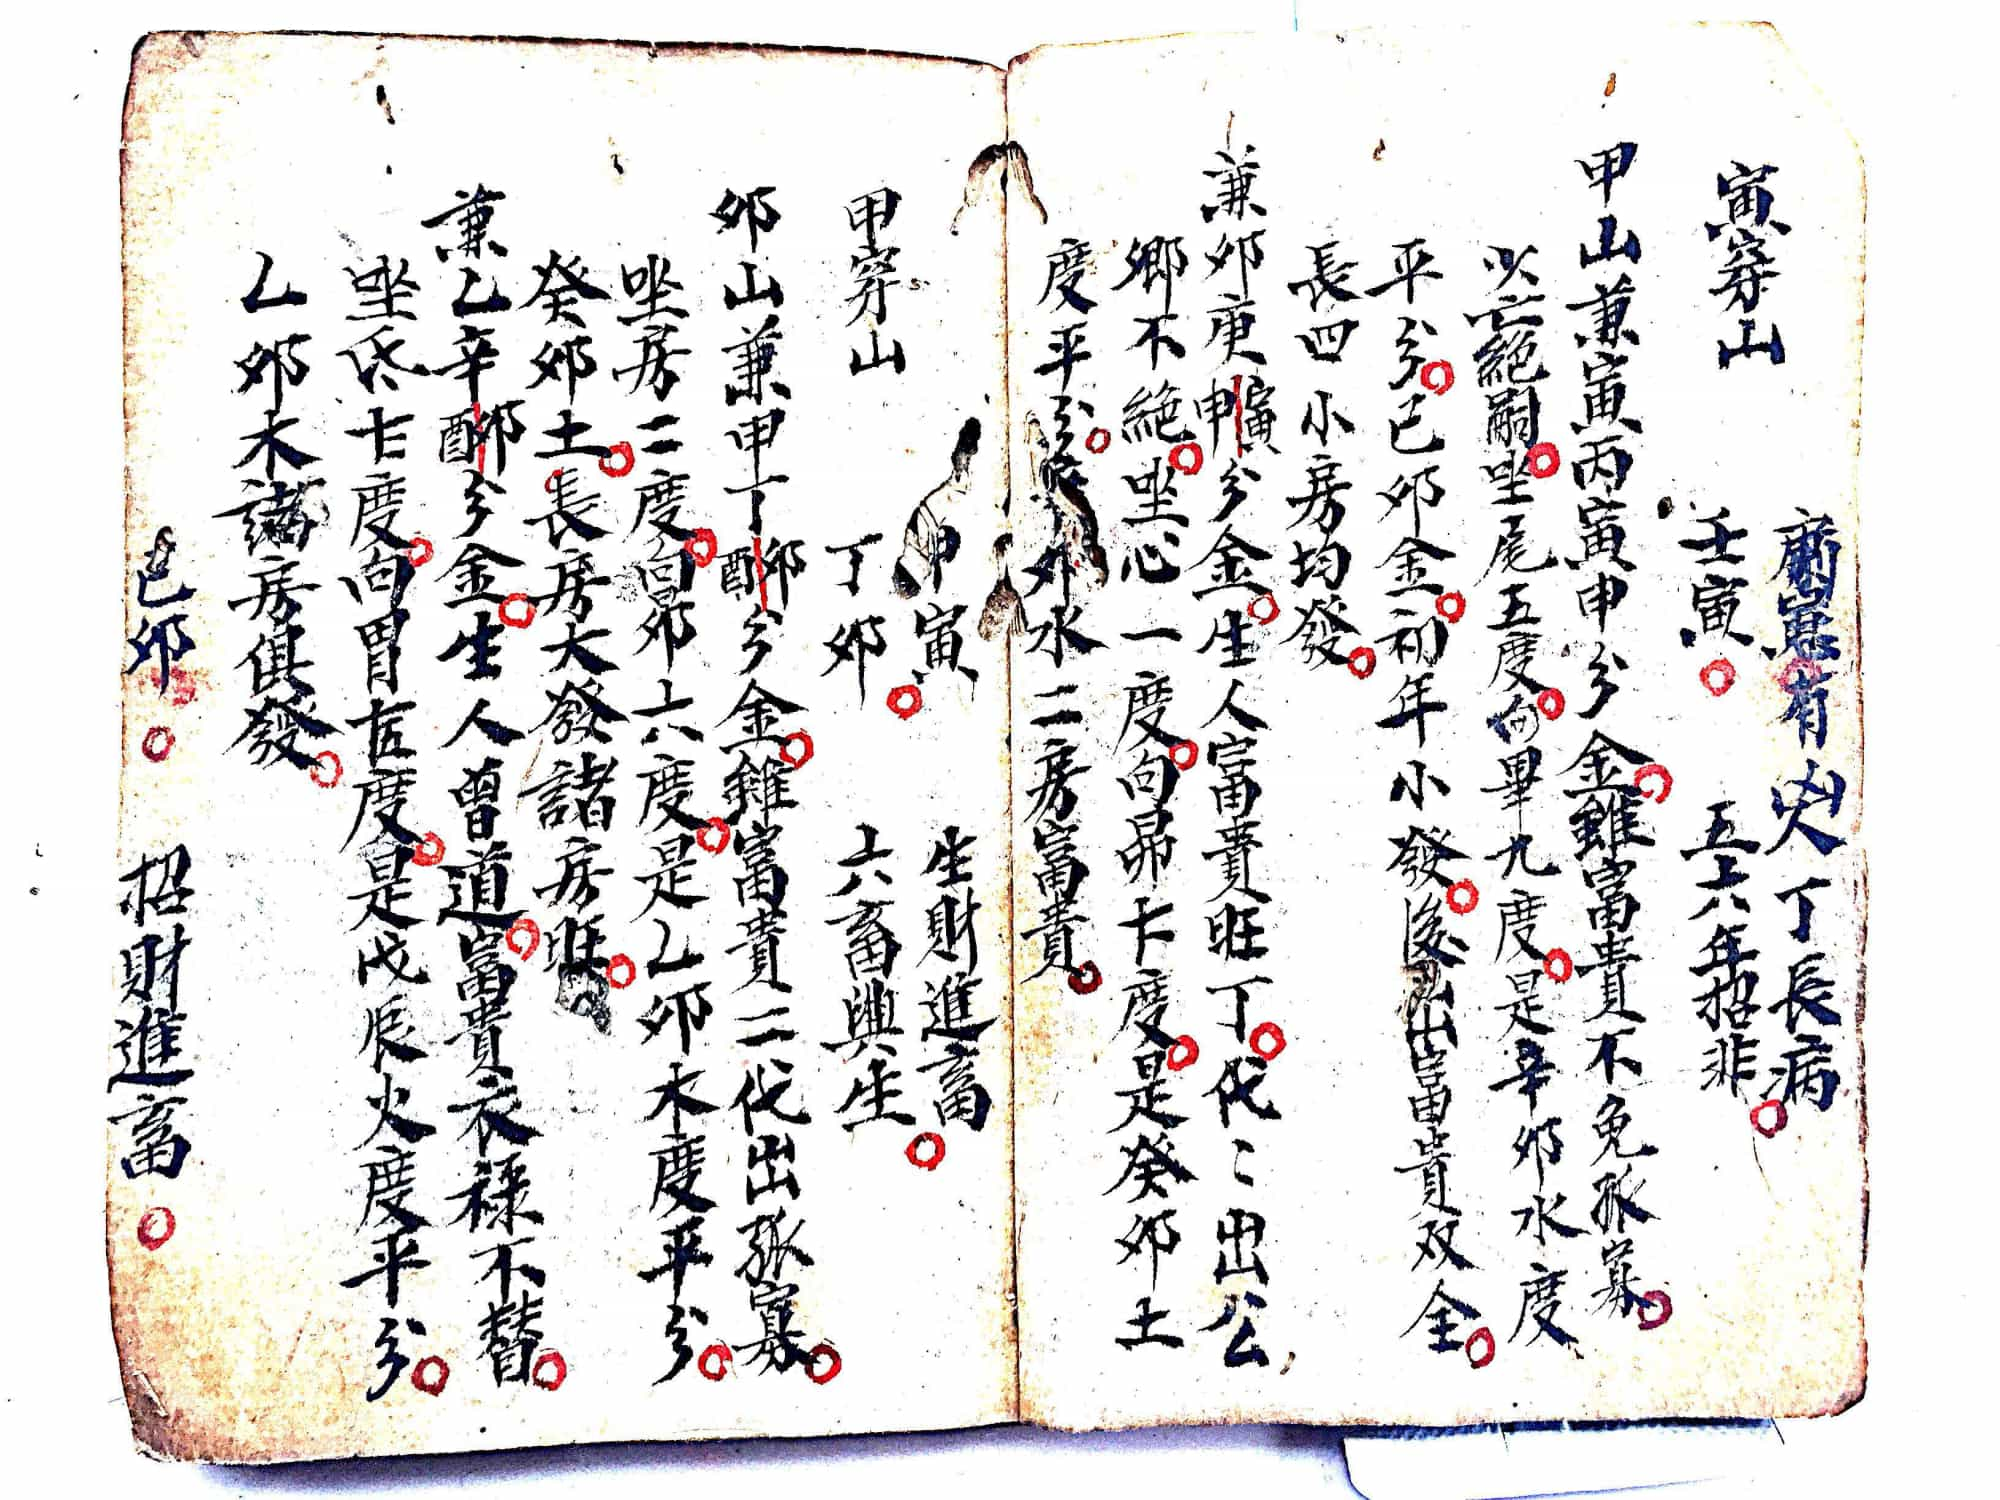 有凶丁長病
寅穿山 壬寅 五六年招非
甲山兼寅丙寅申分金雖富貴不免孤寡
以亡絕嗣坐尾五度向畢九度是辛卯水度
平分己卯金初年小發後出富貴双全
長四小房均發
兼卯庚寅申分金生人富貴旺丁代〻出公
鄉不絕坐心一度向昴七度是癸卯土
度平分 卯水二房富貴
甲寅 生財進畜
甲穿山 丁卯 六畜興生
卯山兼甲丁卯酉分金雖富貴二代出孤寡
坐房二度向昴六度是乙卯木度平分
癸卯土長房大發諸房旺
兼乙辛卯酉分金生人曾道富貴衣祿不替
坐氐七度向胃五度是戊辰火度平分
乙卯木諸房俱發
己卯 招財進畜